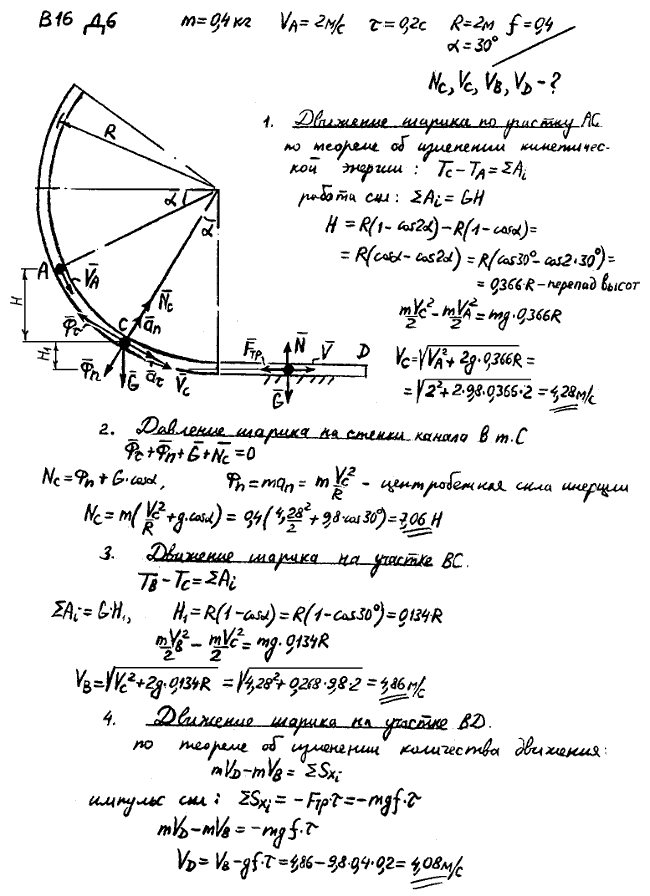 В16 Д6 m=0,4кг V_A=2м/с τ=0,2с R=2м f=0,4
α=30°
N_C, V_C, V_B, V_D - ?
1. Движение шарика по участку АС.
по теореме об изменении кинетичес-
кой энергии: T_C-T_A=ΣA_i
работа сил: ΣA_i=GH
H=R(1-cos2α)-R(1-cosα)=
=R(cosα-cos2α)=R(cos30°-cos2·30°)=
=0,366R-перепад высот
mV_C²/2 - mV_A²/2 = mg·0,366R
V_C=√(V_A²+2g·0,366R)=
=√(2²+2·9,8·0,366·2)=4,28м/с
R
α
α
A
V̄_A
H
N̄_C
C
ā_n
Φ̄_τ
H₁
Φ̄_n
Ḡ
ā_τ
V̄_C
F̄_тр
N̄
V̄
D
Ḡ
2. Давление шарика на стенки канала в т.С
Φ̄_τ+Φ̄_n+Ḡ+N̄_C=0
N_C=Φ_n+G·cosα, Φ_n=ma_n=m V_C²/R - центробежная сила инерции
N_C=m(V_C²/R+g·cosα)=0,4(4,28²/2+9,8·cos30°)=7,06 Н
3. Движение шарика на участке ВС.
T_B-T_C=ΣA_i
ΣA_i=G·H₁, H₁=R(1-cosα)=R(1-cos30°)=0,134R
mV_B²/2 - mV_C²/2 = mg·0,134R
V_B=√(V_C²+2g·0,134R)=√(4,28²+0,268·9,8·2)=4,86м/с
4. Движение шарика на участке BD.
по теореме об изменении количества движения:
mV_D-mV_B=ΣS_xi
импульс сил: ΣS_xi=-F_тр·τ=-mgf·τ
mV_D-mV_B=-mgf·τ
V_D=V_B-gf·τ=4,86-9,8·0,4·0,2=4,08м/с